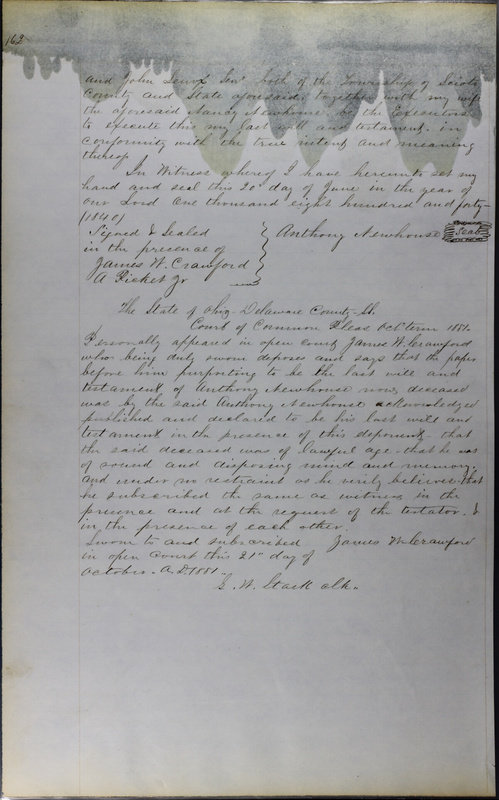 162
and John Lenox Senr both of the Township of Scioto
County and State aforesaid, together with my wife
the aforesaid Nancy Newhouse be the Executors
to execute this my last will and testament. in
conformity with the true intent and meaning
thereof
In Witness whereof I have hereunto set my
hand and seal this 20" day of June in the year of
our Lord One thousand eight hundred and forty-
(1840)
Signed & Sealed
in the presence of
James W. Crawford
A Picket Jr
Anthony Newhouse Seal
The State of Ohio - Delaware County - Ss.
Court of Common Pleas Oct term 1851.
Personally appeared in open court James W. Crawford
who being duly sworn deposes and says that the paper
before him purporting to be the last will and
testament of Anthony Newhouse now deceased
was by the said Anthony Newhouse acknowledged
published and declared to be his last will and
testament in the presence of this deponent, that
the said deceased was of lawful age - that he was
of sound and disposing mind and memory
and under no restraint as he verily believes. that
he subscribed the same as witness in the
presence and at the request of the testator. &
in the presence of each other.
Sworn to and subscribed James W. Crawford
in open Court this 21" day of
October. A.D. 1851
Stark clk.